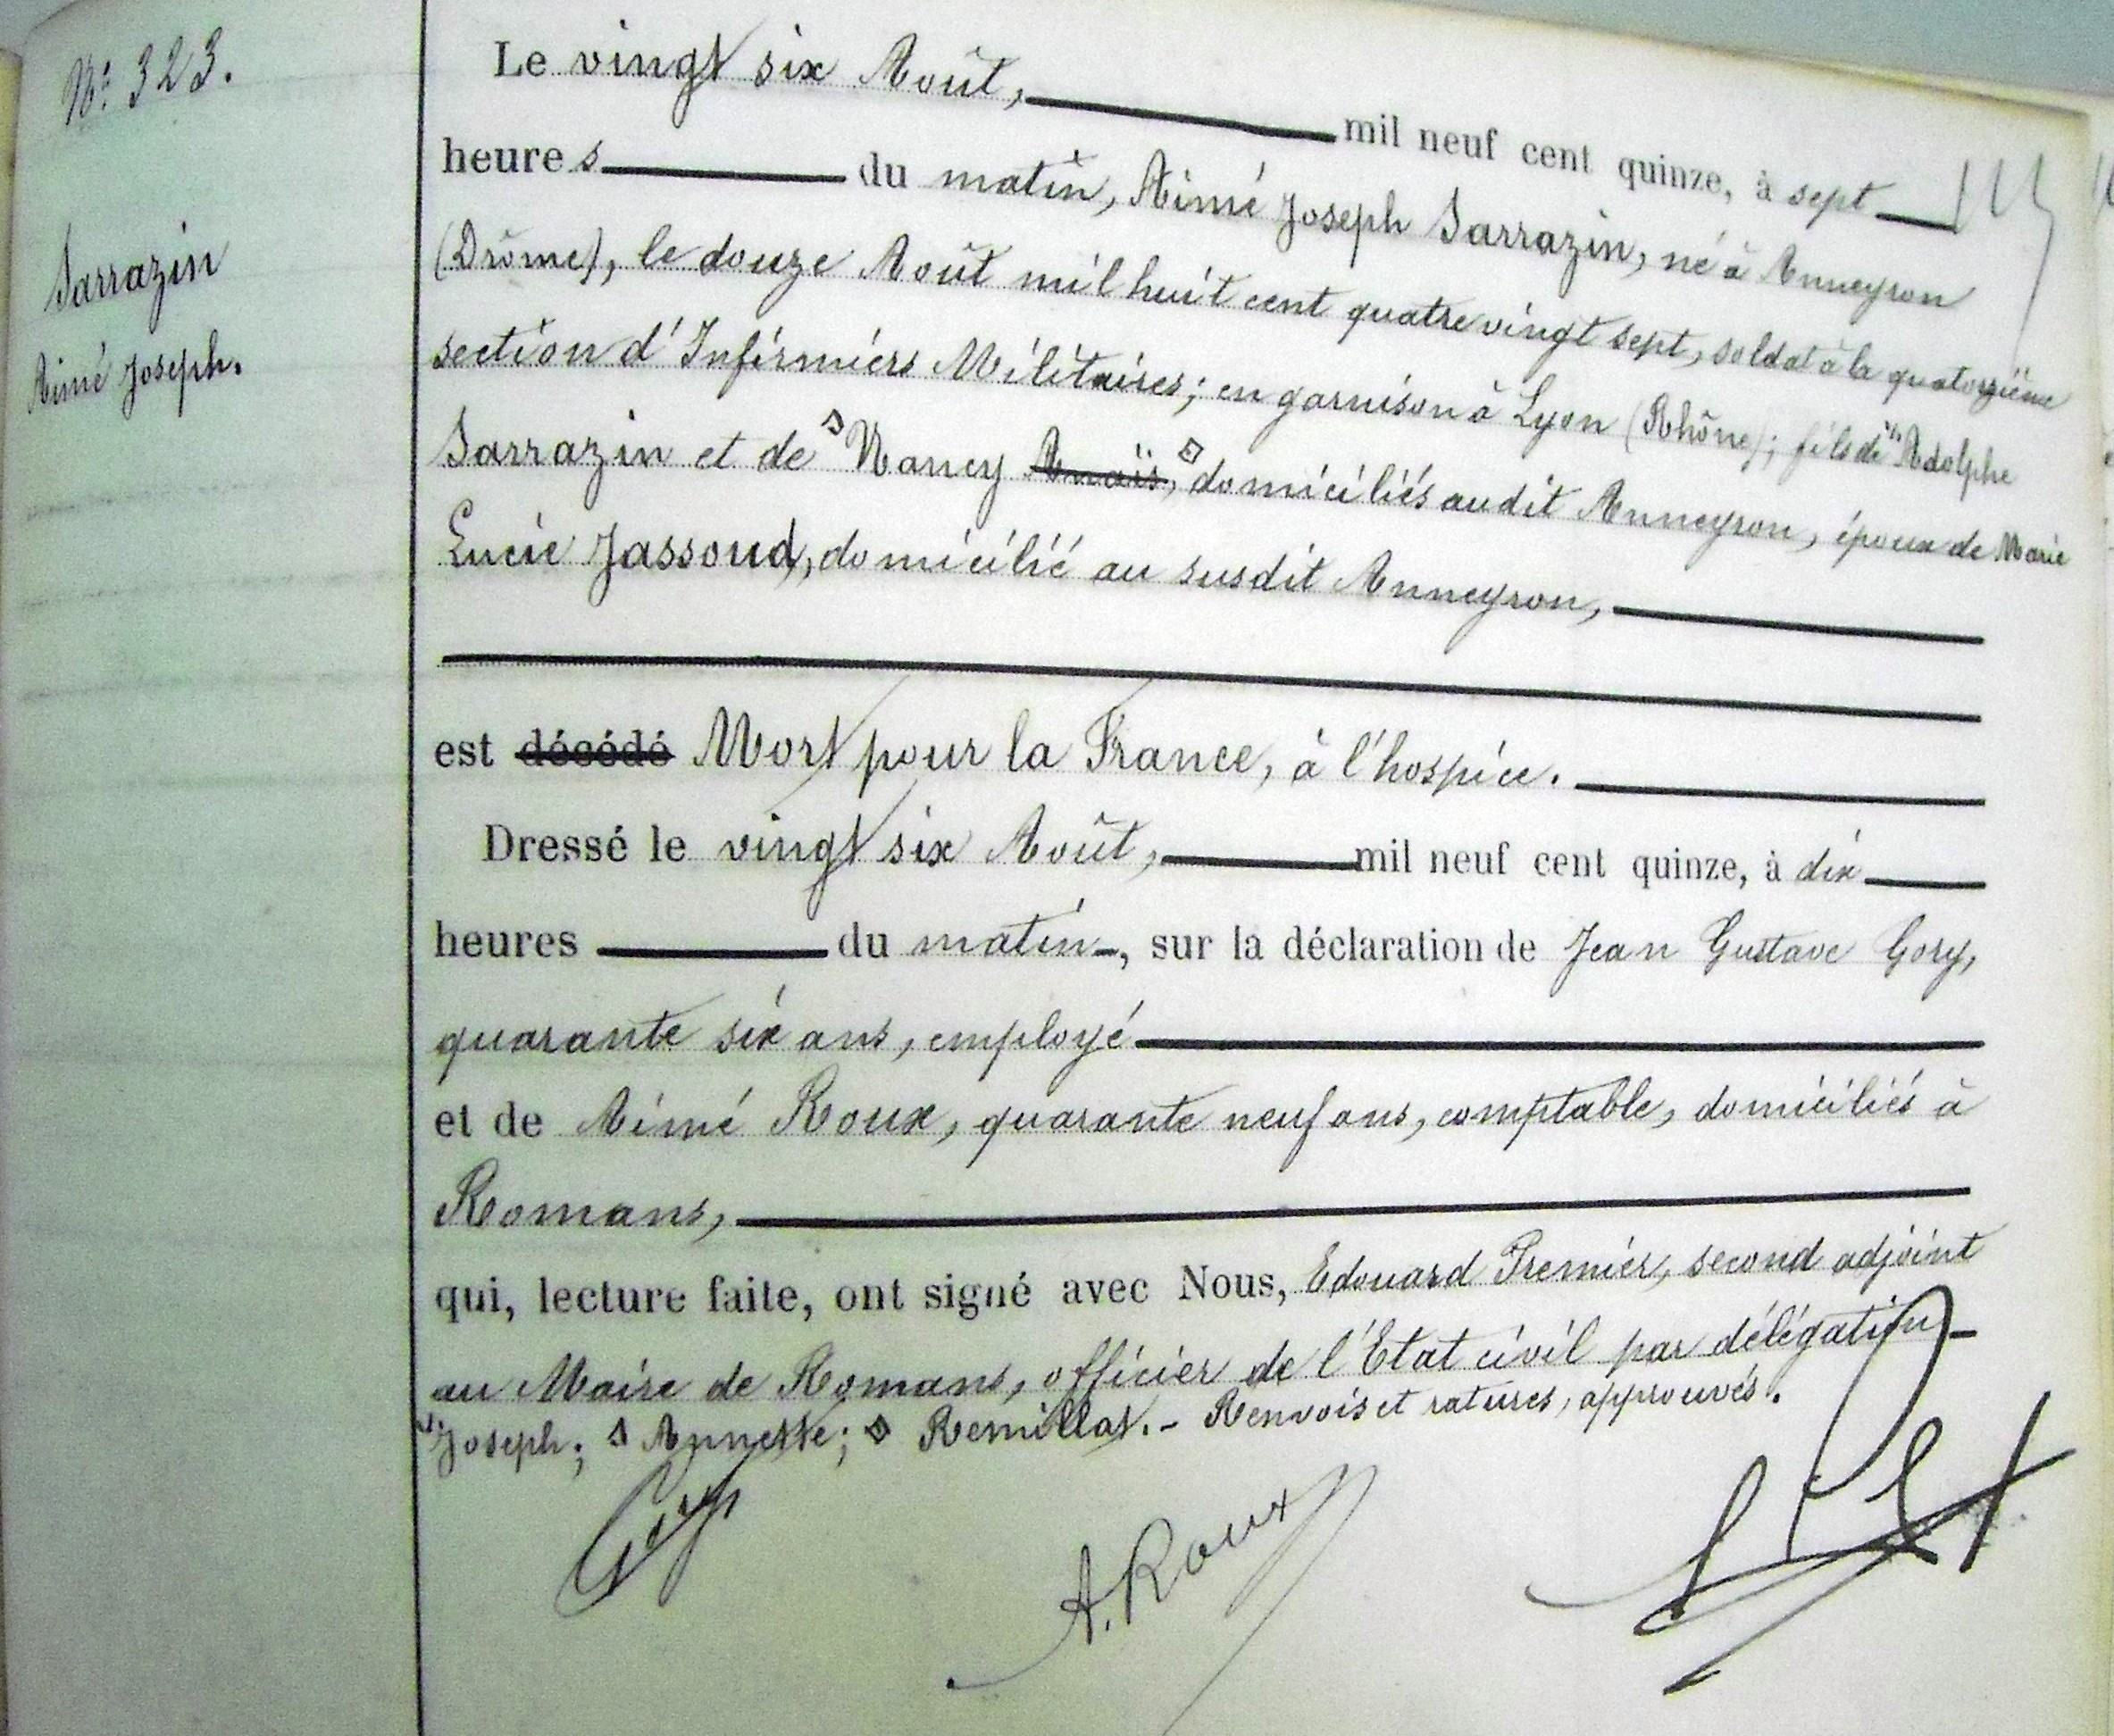 N° 323.
Sarrazin
Aimé Joseph.
Le vingt six Août, mil neuf cent quinze, à sept
heures du matin, Aimé Joseph Sarrazin, né à Anneyron
(Drôme), le douze Août mil huit cent quatre vingt sept, soldat à la quatorzième
section d'Infirmiers Militaires; en garnison à Lyon (Rhône); fils de Adolphe
Sarrazin et de Nancy Anaïs, domiciliés audit Anneyron, époux de Marie
Lucie Jassoud, domicilié au susdit Anneyron,
est décédé Mort pour la France, à l'hospice.
Dressé le vingt six Août, mil neuf cent quinze, à dix
heures du matin, sur la déclaration de Jean Gustave Gory,
quarante six ans, employé
et de Aimé Roux, quarante neuf ans, comptable, domiciliés à
Romans,
qui, lecture faite, ont signé avec Nous, Edouard Premier, second adjoint
au Maire de Romans, officier de l'Etat civil par délégation
Joseph; Annette; Remillat. - Renvois et ratures, approuvés.
Gory
A. Roux